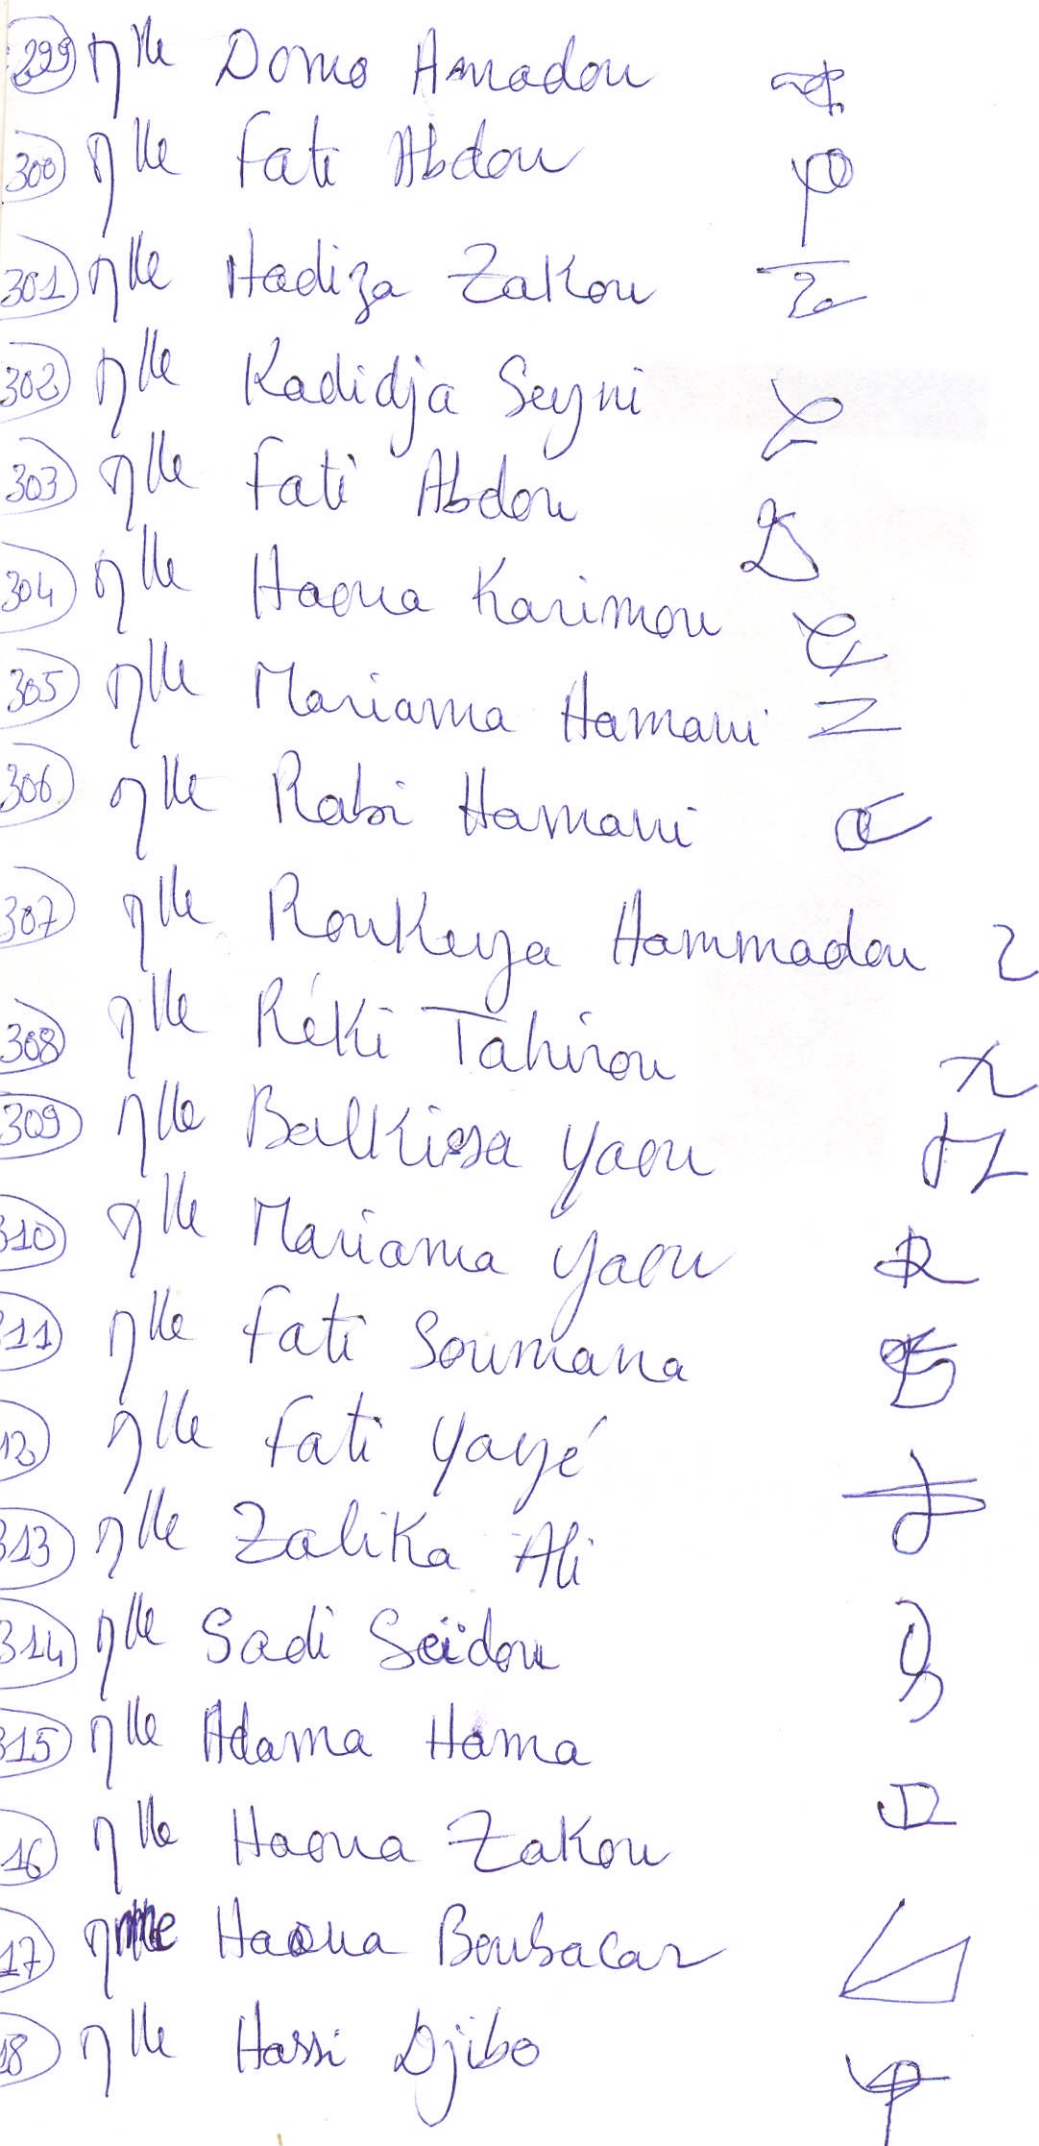 299 Mlle Domo Amadou
300 Mlle Fati Abdou
301 Mlle Hadiza Zakou
302 Mlle Kadidja Seyni
303 Mlle Fati Abdou
304 Mlle Haoua Karimou
305 Mlle Mariama Hamani
306 Mlle Rabi Hamani
307 Mlle Roukeya Hammadou
308 Mlle Réki Tahirou
309 Mlle Balkissa Yaou
310 Mlle Mariama Yaou
311 Mlle Fati Soumana
12 Mlle Fati Yayé
313 Mlle Zalika Ali
314 Mlle Sadi Seïdou
315 Mlle Adama Hama
16 Mlle Haoua Zakou
17 Mme Haoua Boubacar
18 Mlle Hassi Djibo